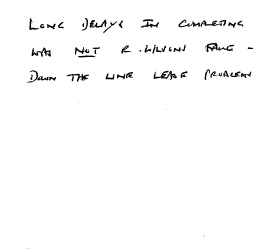 LONG DELAYS IN COMPLETING
WAS NOT R. WILSONS FAULT -
DOWN THE LINE LEASE PROBLEMS